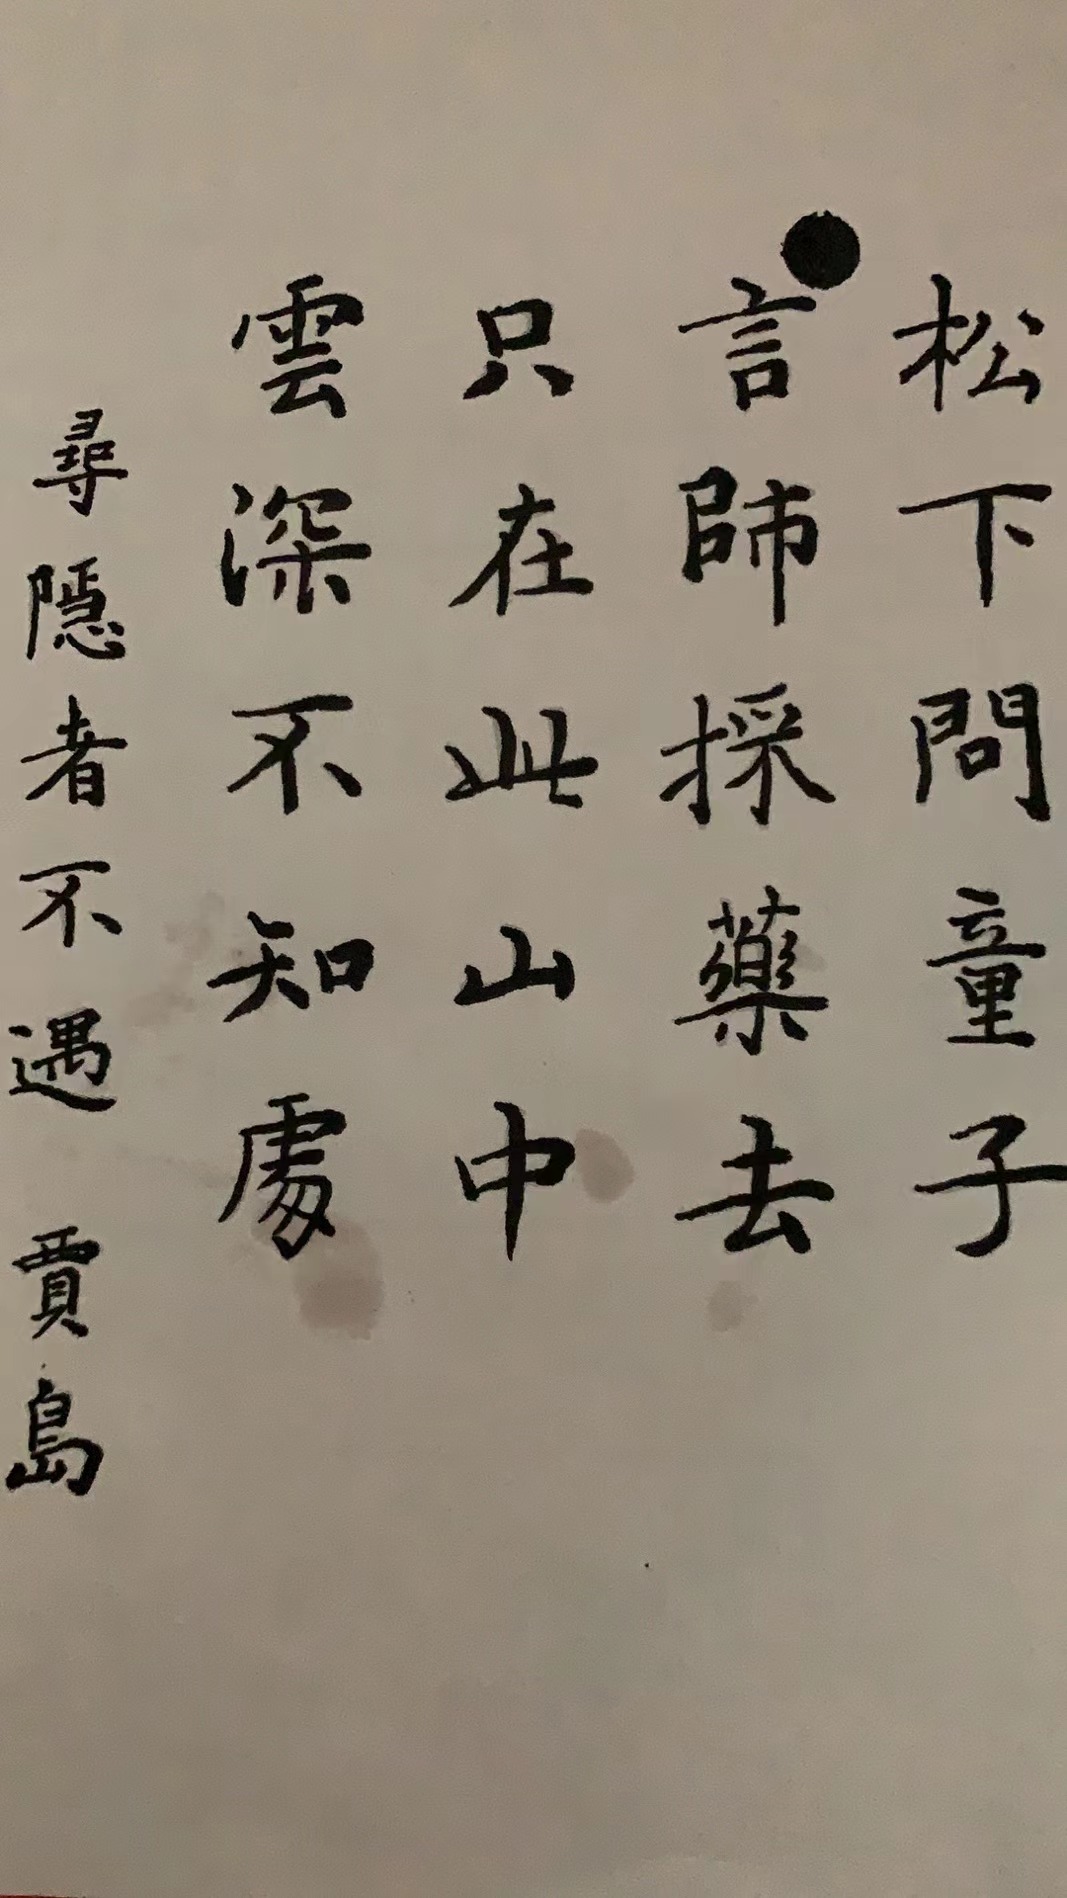 松下問童子
言師採藥去
只在此山中
雲深不知處
尋隱者不遇 賈島